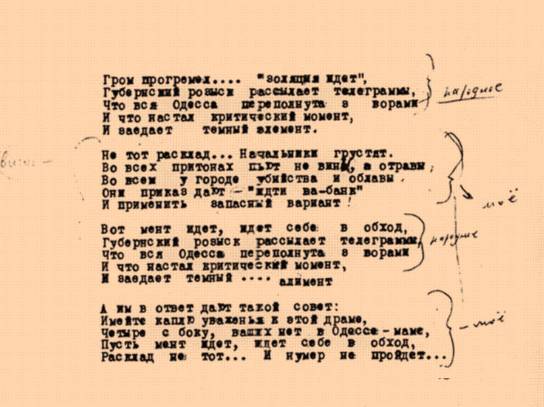 Гром прогремел.... "золяция идет",
Губернский розыск рассылает телеграммы,
Что вся Одесса переполнута з ворами
И что настал критический момент,
И заедает темный элемент.
народное
Не тот расклад... Начальники грустят.
Во всех притонах пьют не вины, а отравы,
Во всем у городе убийства и облавы.
Они приказ дают - "идти ва-банк"
И применить запасный вариант!
моё
Вот мент идет, идет себе в обход,
Губернский розыск рассылает телеграммы,
Что вся Одесса переполнута з ворами
И что настал критический момент,
И заедает темный .... алимент
народное
А им в ответ дают такой совет:
Имейте каплю уваженья к этой драме,
Четыре с боку, ваших нет в Одессе-маме,
Пусть мент идет, идет себе в обход,
Расклад не тот... И нумер не пройдет...
- моё